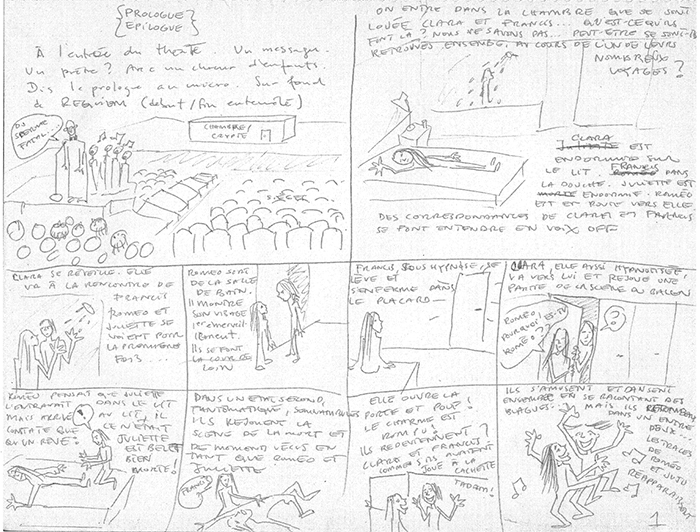 {PROLOGUE/
EPILOGUE}
À l'entrée du theatre. Un message.
Un prêtre? Avec un chœur d'enfants.
Dis le prologue au micro. Sur fond
de REQUIEM (début/fin entremêlé)
CHAMBRE/
CRYPTE
ON ENTRE DANS LA CHAMBRE QUE SE SONT
LOUÉE CLARA ET FRANCIS... QU'EST-CE QU'ILS
FONT LÀ? NOUS NE SAVONS PAS... PEUT-ÊTRE SE SONT-ILS
RETROUVÉS ENSEMBLE, AU COURS DE L'UN DE LEURS
NOMBREUX
VOYAGES?
CLARA
JULIETTE EST
ENDORMIE SUR
LE LIT. FRANCIS
ROMÉO DANS
LA DOUCHE. JULIETTE EST
MORTE ENDORMIE. ROMÉO
EST EN ROUTE VERS ELLE.
DES CORRESPONDANCES DE CLARA ET FRANCIS
SE FONT ENTENDRE EN VOIX OFF
CLARA SE RÉVEILLE. ELLE
VA À LA RENCONTRE DE
FRANCIS
ROMÉO ET
JULIETTE SE
VOIENT POUR
LA PREMIÈRE
FOIS....
ROMÉO SORT
DE LA SALLE
DE BAIN.
IL MONTRE
SON VISAGE
ILS SE FONT
LA COUR DE
LOIN
FRANCIS, SOUS HYPNOSE, SE
LÈVE ET
S'ENFERME DANS
LE PLACARD
CLARA, ELLE AUSSI HYPNOTISÉE
VA VERS LUI ET REJOUE UNE
PARTIE DE LA SCÈNE DU BALCON
ROMÉO!
POURQUOI ES-TU
ROMÉO?
?
ROMÉO PENSAIT QUE JULIETTE
L'ENTRAVAIT DANS LE LIT
MAIS ARRIVÉ AU LIT, IL
CONSTATE QUE CE N'ÉTAIT
QU'UN RÊVE! JULIETTE
EST BEL ET
BIEN
MORTE!
DANS UN ÉTAT SECOND,
FANTOMATIQUE, SOMNAMBULES
ILS REJOUENT LA
SCÈNE DE LA MORT ET
DE MOMENTS VÉCUS EN
TANT QUE ROMÉO ET
JULIETTE
FRANCIS
ELLE OUVRE LA
PORTE ET POUF!
LE CHARME EST
ROMPU!
ILS REDEVIENNENT
CLARA ET FRANCIS
COMME S'ILS AVAIENT
JOUÉ À LA
CACHETTE
TADAM!
ILS S'AMUSENT ET DANSENT
ENSEMBLE EN SE RACONTANT DES
BLAGUES. MAIS ILS RETOMBENT
DANS UN ENTRE
DEUX...
LES TRACES
DE ROMÉO
ET JUJU
RÉAPPARAISSENT
1